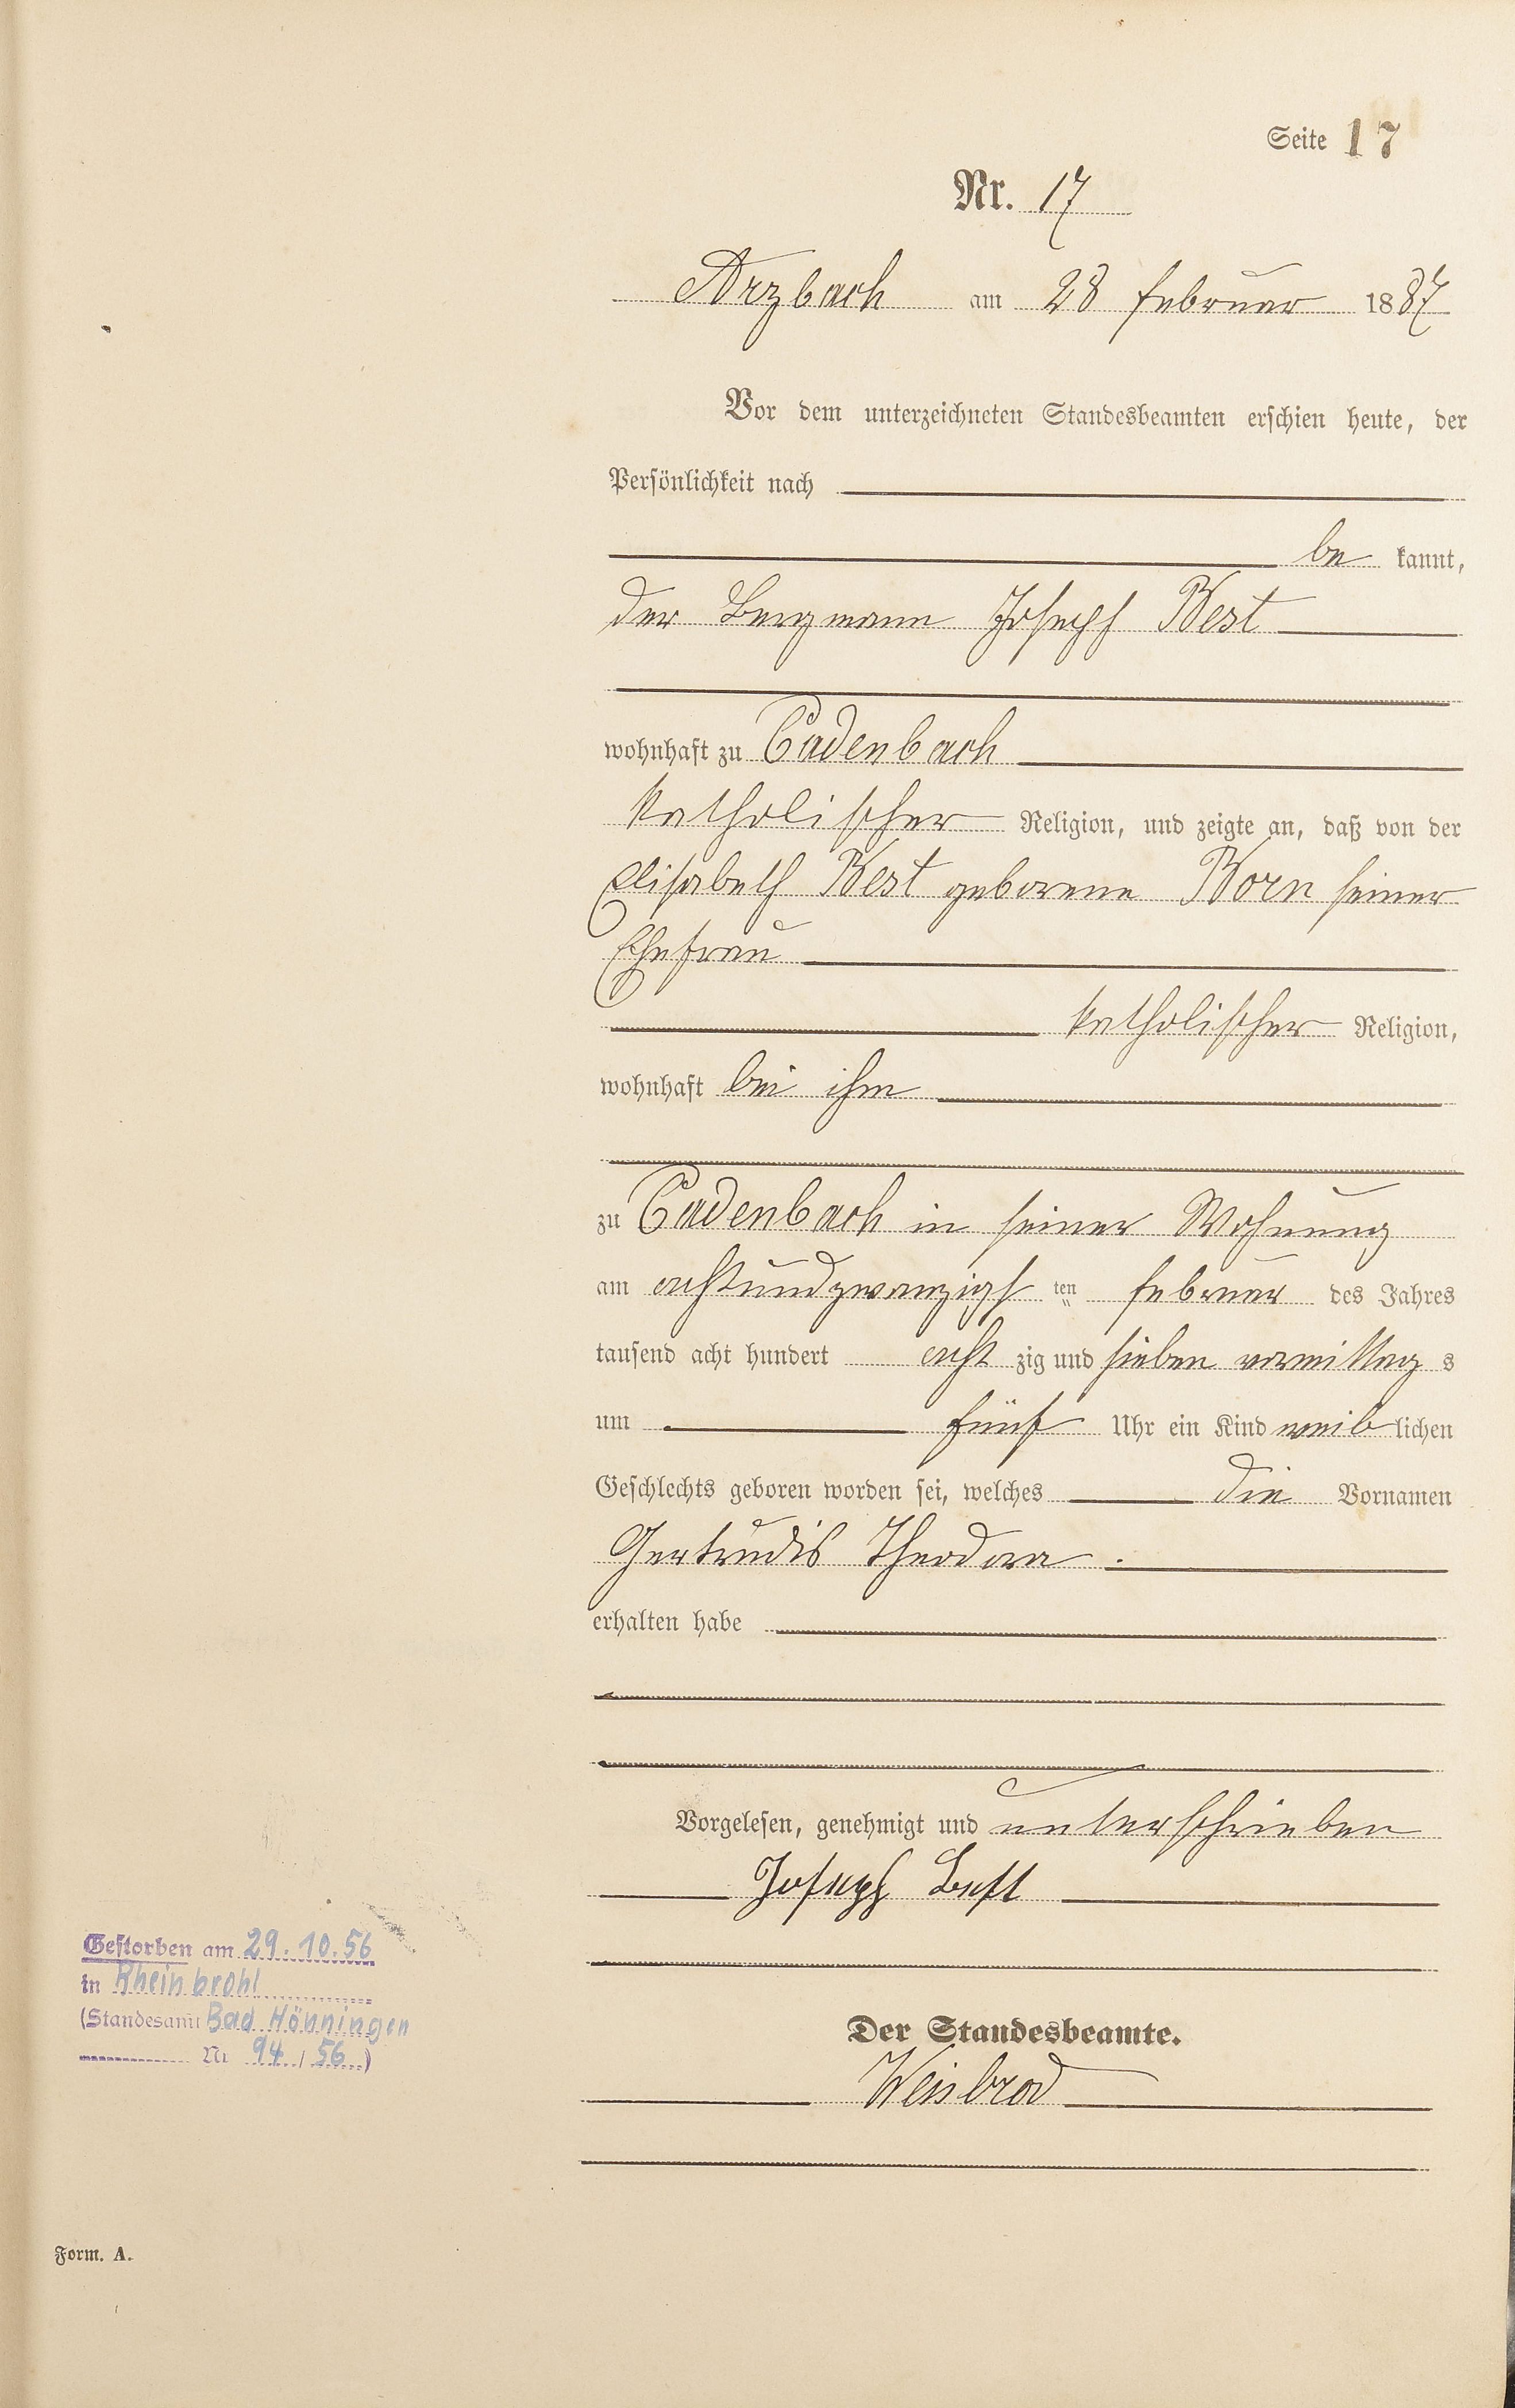 Seite 17
Nr. 17
Arzbach am 28 Februar 1887
Vor dem unterzeichneten Standesbeamten erschien heute, der
Persönlichkeit nach
be kannt,
der Bergmann Joseph Best
wohnhaft zu Cadenbach
katholischer Religion, und zeigte an, daß von der
Elisabeth Best geborene Born seiner
Ehefrau
katholischer Religion,
wohnhaft bei ihm
zu Cadenbach in seiner Wohnung
am achtundzwanzigs ten Februar des Jahres
tausend acht hundert acht zig und sieben vormittag s
um fünf Uhr ein Kind weib lichen
Geschlechts geboren worden sei, welches die Vornamen
Gertrudis Theodora.
erhalten habe
Vorgelesen, genehmigt und unterschrieben
Joseph Best
Gestorben am 29.10.56
in Rheinbrohl
(Standesamt Bad Hönningen
Nr 94 / 56)
Der Standesbeamte.
Weisbrod
Form. A.